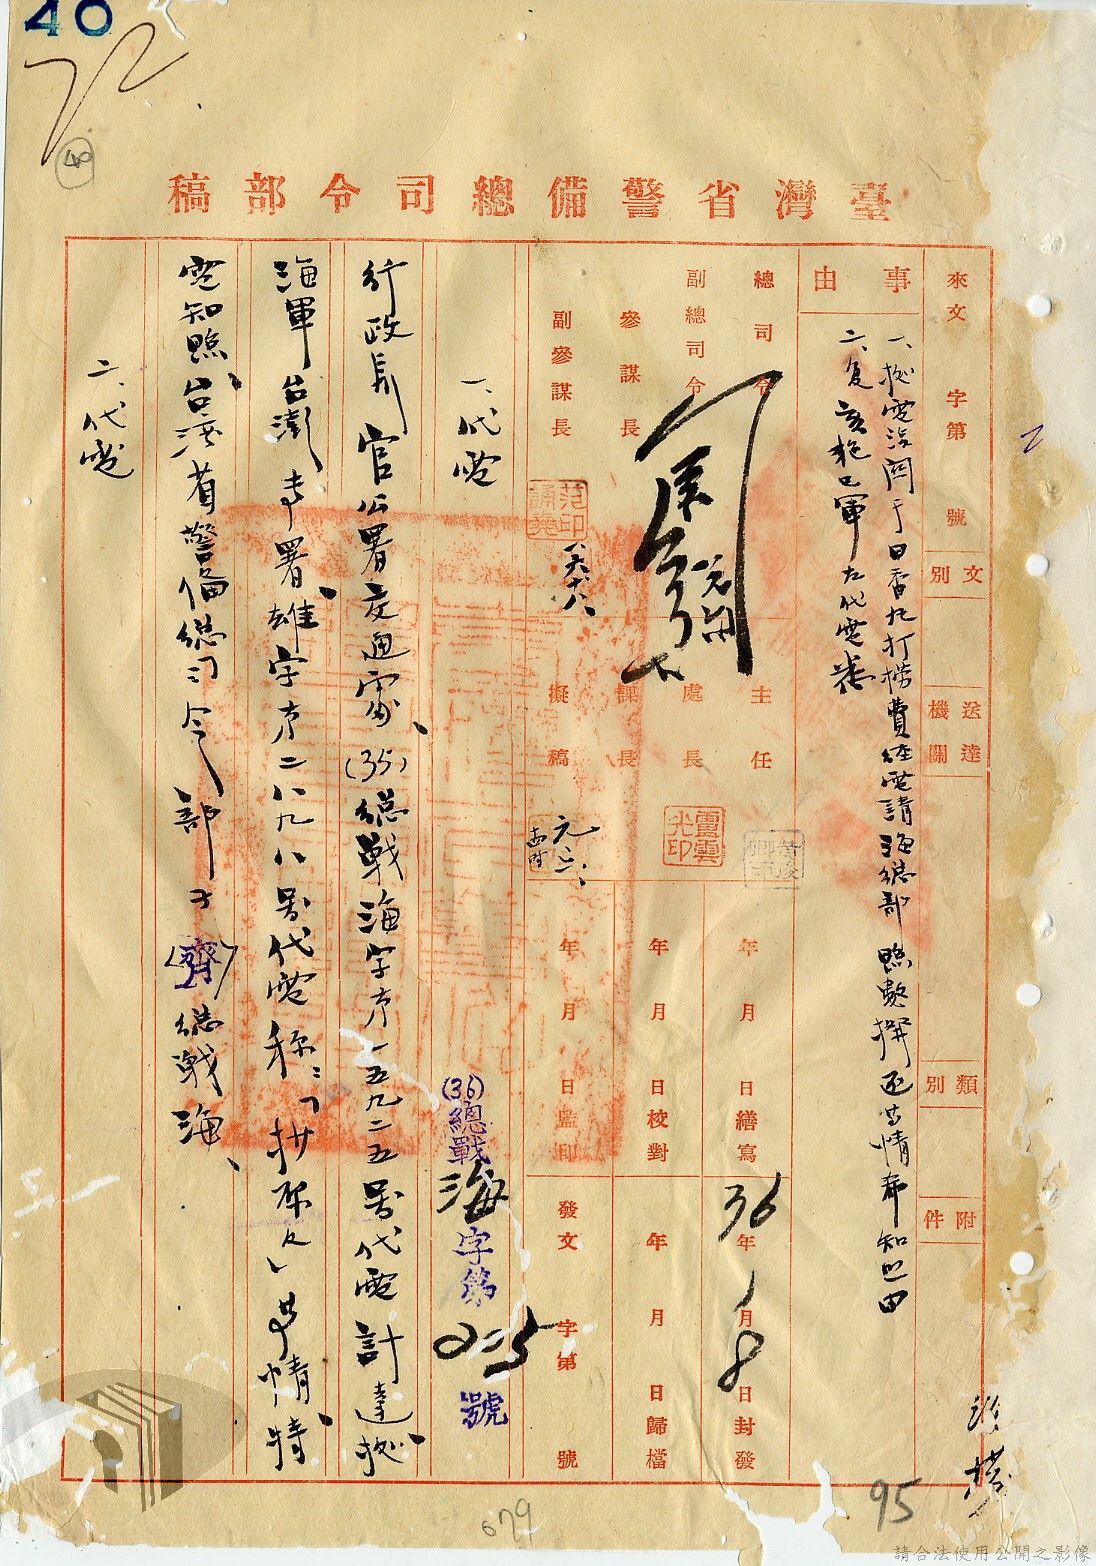 40
72
40
臺灣省警備總司令部稿
來文 字第 號
文別
送達機關
類別
附件
事由
一、據電請關于日香丸打撈費經電請海總部照數撥還等情希知照由
二、復 該艳已軍
總司令
副總司令
參謀長
副參謀長
主任
處長
課長
擬稿
范印誦堯
雷雲光印
年 月 日繕寫
年 月 日校對
年 月 日監印
36年1月8日封發
年 月 日歸檔
發文 字第 號
(36)總戰海字第 號
一、代電
行政長官公署交通處、(35)總戰海字第一五九二五號代電計達據
海軍台澎專署、雄字第二八九八號代電稱:「抄原文」等情、特
電知照、台灣省警備總司令部子(齊)總戰海、
二、代電
95
679
請合法使用公開之影像